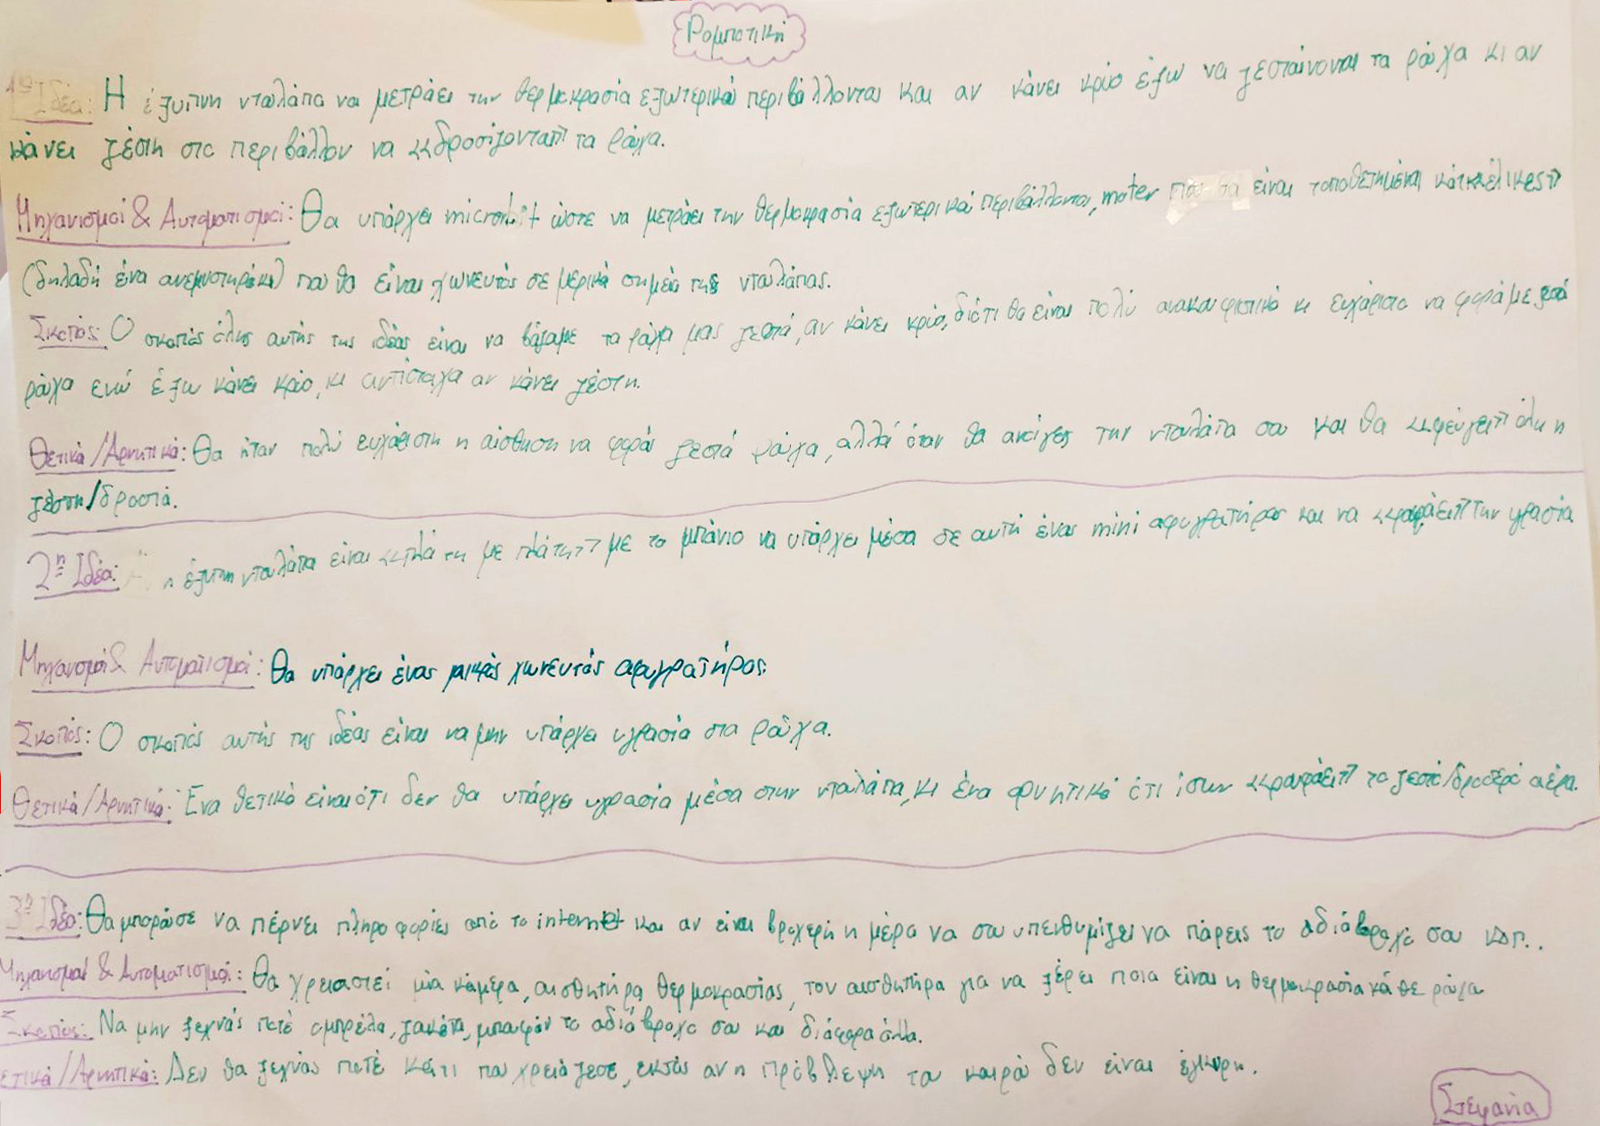 Ρομποτική
1η Ιδέα: Η έξυπνη ντουλάπα να μετράει την θερμοκρασία εξωτερικού περιβάλλοντος και αν κάνει κρύο έξω να ζεσταίνονται τα ρούχα κι αν
κάνει ζέστη στο περιβάλλον να <<δροσίζονται>> τα ρούχα.
Μηχανισμοί & Αυτοματισμοί: Θα υπάρχει microbit ώστε να μετράει την θερμοκρασία εξωτερικού περιβάλλοντος, moter που θα είναι τοποθετημένοι κάτι <<έλικες>>
(δηλαδή ένα ανεμιστηράκι) που θα είναι χωνευτός σε μερικά σημεία της ντουλάπας.
Σκοπός: Ο σκοπός όλης αυτής της ιδέας είναι να βάζουμε τα ρούχα μας ζεστά, αν κάνει κρύο, διότι θα είναι πολύ ανακουφιστικό κι ευχάριστο να φοράμε ζεστά
ρούχα ενώ έξω κάνει κρύο, κι αντίστοιχα αν κάνει ζέστη.
Θετικά/Αρνητικά: Θα ήταν πολύ ευχάριστη η αίσθηση να φοράς ζεστά ρούχα, αλλά όταν θα ανοίγεις την ντουλάπα σου και θα <<φεύγει>> όλη η
ζέστη/δροσιά.
2η Ιδέα: η έξυπνη ντουλάπα είναι <<πλάτη με πλάτη>> με το μπάνιο να υπάρχει μέσα σε αυτή ένας mini αφυγρατήρας και να <<ρουφάει>> την υγρασία
Μηχανισμοί & Αυτοματισμοί: Θα υπάρχει ένας μικρός χωνευτός αφυγρατήρας.
Σκοπός: Ο σκοπός αυτής της ιδέας είναι να μην υπάρχει υγρασία στα ρούχα.
Θετικά/Αρνητικά: Ένα θετικό είναι ότι δεν θα υπάρχει υγρασία μέσα στην ντουλάπα, κι ένα αρνητικό ότι ίσως <<ρουφάει>> το ζεστό/δροσερό αέρα.
3η Ιδέα: Θα μπορούσε να πέρνει πληροφορίες από το internet και αν είναι βροχερή η μέρα να σου υπενθυμίζει να πάρεις το αδιάβροχό σου κ.α.π..
Μηχανισμοί & Αυτοματισμοί: Θα χρειαστεί μία κάμερα, αισθητήρα θερμοκρασίας, τον αισθητήρα για να ξέρει ποια είναι η θερμοκρασία κάθε ρούχα
Σκοπός: Να μην ξεχνάς ποτέ ομπρέλα, ζακέτα, μπουφάν το αδιάβροχο σου και διάφορα άλλα.
ετικά/Αρνητικά: Δεν θα ξεχνάς ποτέ κάτι που χρειάζεσε, εκτός αν η πρόβλεψη του καιρού δεν είναι έγκυρη.
Στεφανία